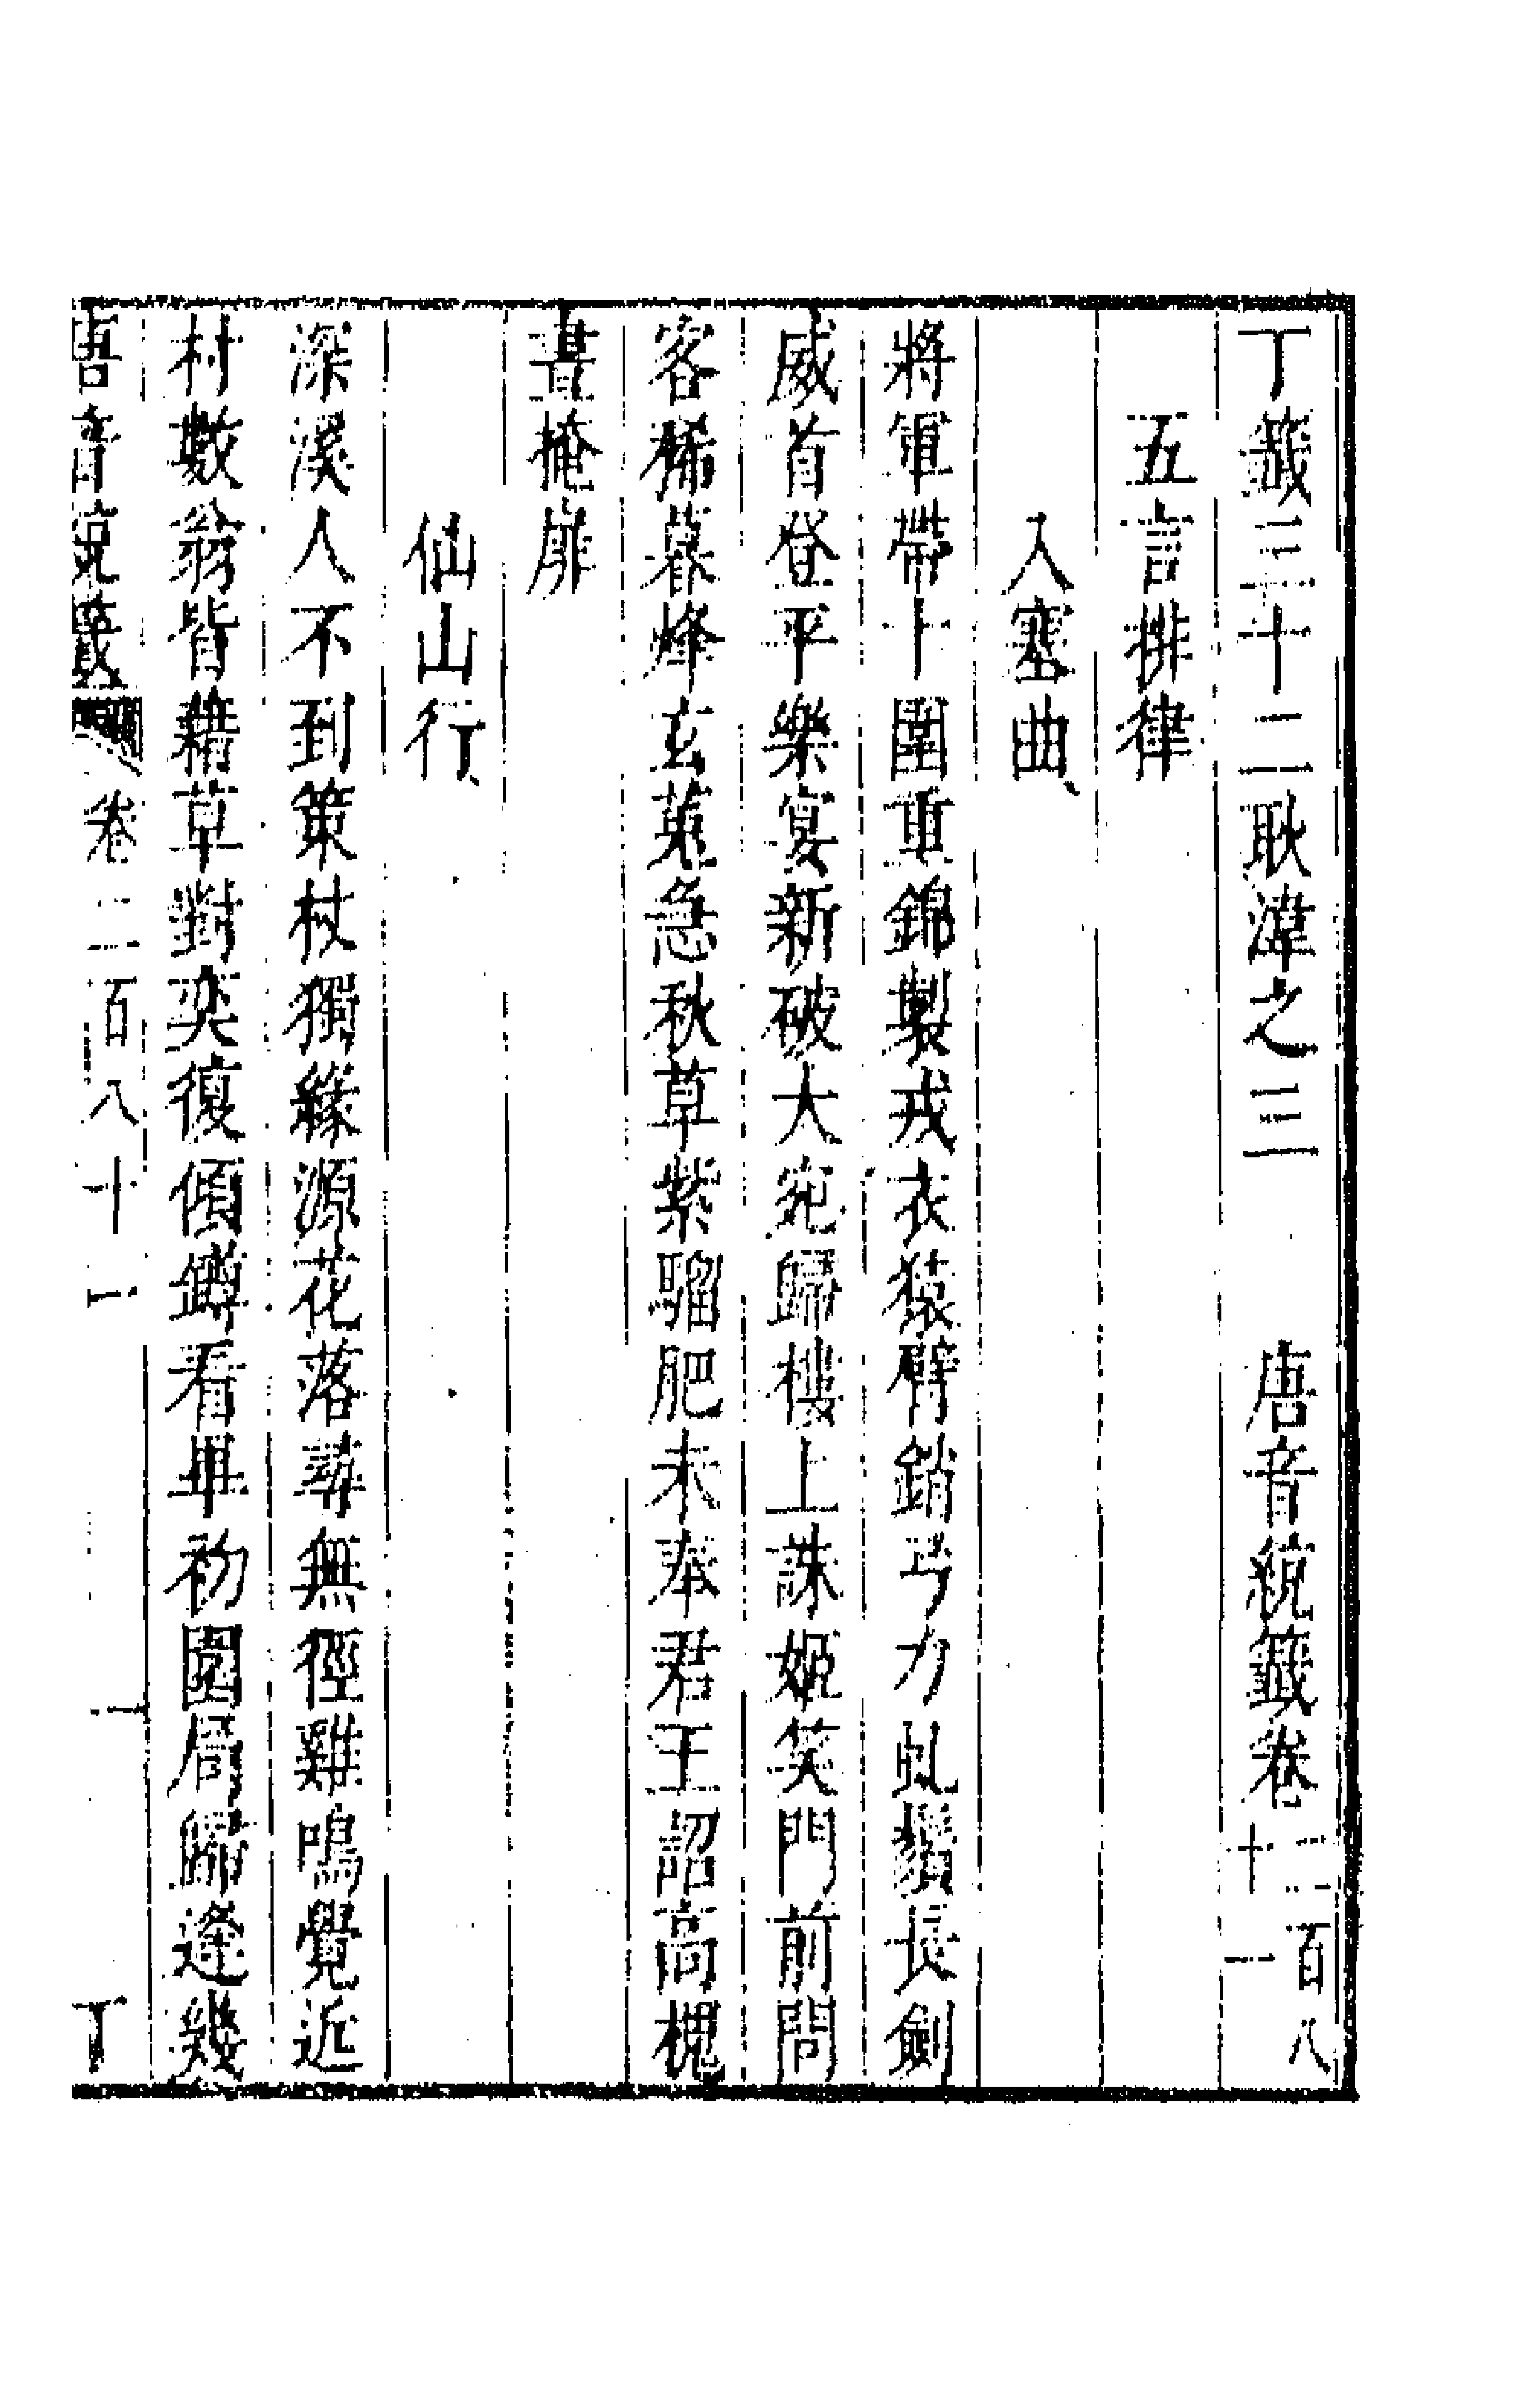 丁籖三十二耿湋之三　唐音統籖卷二百八十一
五言排律
入塞曲
將軍帶十圍重錦製戎衣猿臂銷弓力虬鬚長劍
威首登平樂宴新破大宛歸樓上誅姬笑門前問
客稀暮烽玄菟急秋草紫騮肥未奉君王詔高槐
晝掩扉
仙山行
深溪人不到策杖獨緣源花落尋無徑雞鳴覺近
村數翁皆藉草對奕復傾罇看畢初圍局歸逢幾
唐音統籖卷二百八十一　一　丁